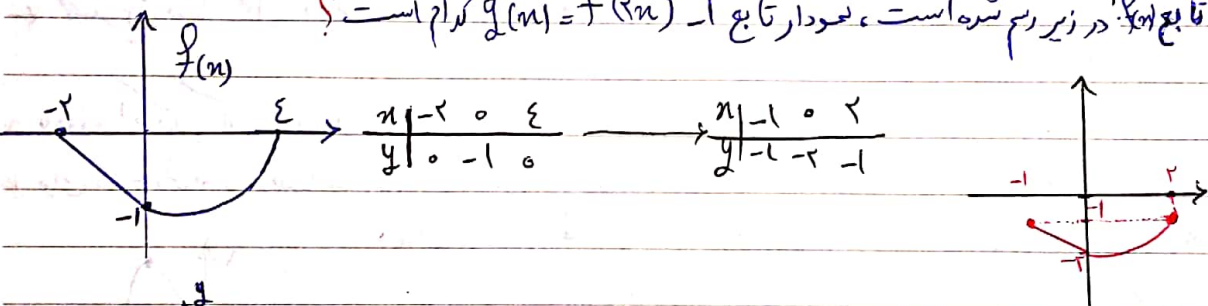 تابع f(x) در زیر رسم شده است ، نمودار تابع g(x) = f(۲x) - ۱ کدام است ؟
f(x)
-۲ ٤
-۱
x | -۲ ۰ ٤
y | ۰ -۱ ۰
x | -۱ ۰ ۲
y | -۱ -۲ -۱
-۱ ۲
-۱
-۲
y